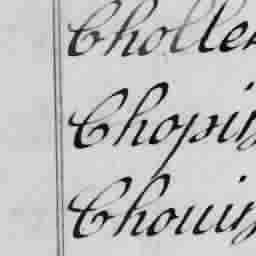 Chollet
Chopin
Chouin